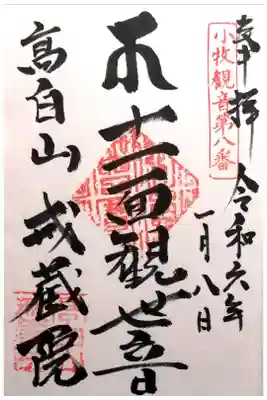 奉拝
小牧觀音第八番
令和六年
一月八日
十一面觀世音
高白山 戒蔵院